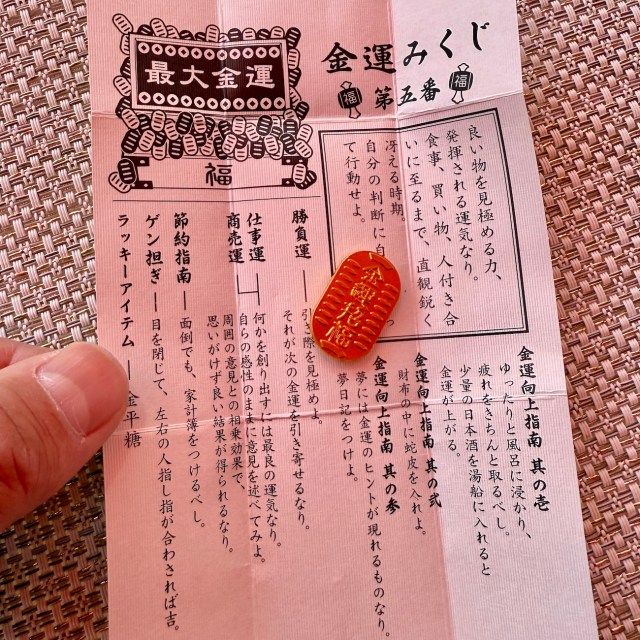 金運みくじ
第五番
最大金運
福
福
福
良い物を見極める力、
発揮される運気なり。
食事、買い物、人付き合
いに至るまで、直観鋭く
冴える時期。
自分の判断に自
って行動せよ。
金運向上指南 其の壱
ゆったりと風呂に浸かり、
疲れをきちんと取るべし。
少量の日本酒を湯船に入れると
金運が上がる。
金運向上指南 其の弐
財布の中に蛇皮を入れよ。
金運向上指南 其の参
夢には金運のヒントが現れるものなり。
夢日記をつけよ。
勝負運
引き際を見極めよ。
それが次の金運を引き寄せるなり。
仕事運
商売運
何かを創り出すには最良の運気なり。
自らの感性のままに意見を述べてみよ。
周囲の意見との相乗効果で、
思いがけず良い結果が得られるなり。
節約指南
面倒でも、家計簿をつけるべし。
ゲン担ぎ
目を閉じて、左右の人指し指が合わされば吉。
ラッキーアイテム
金平糖